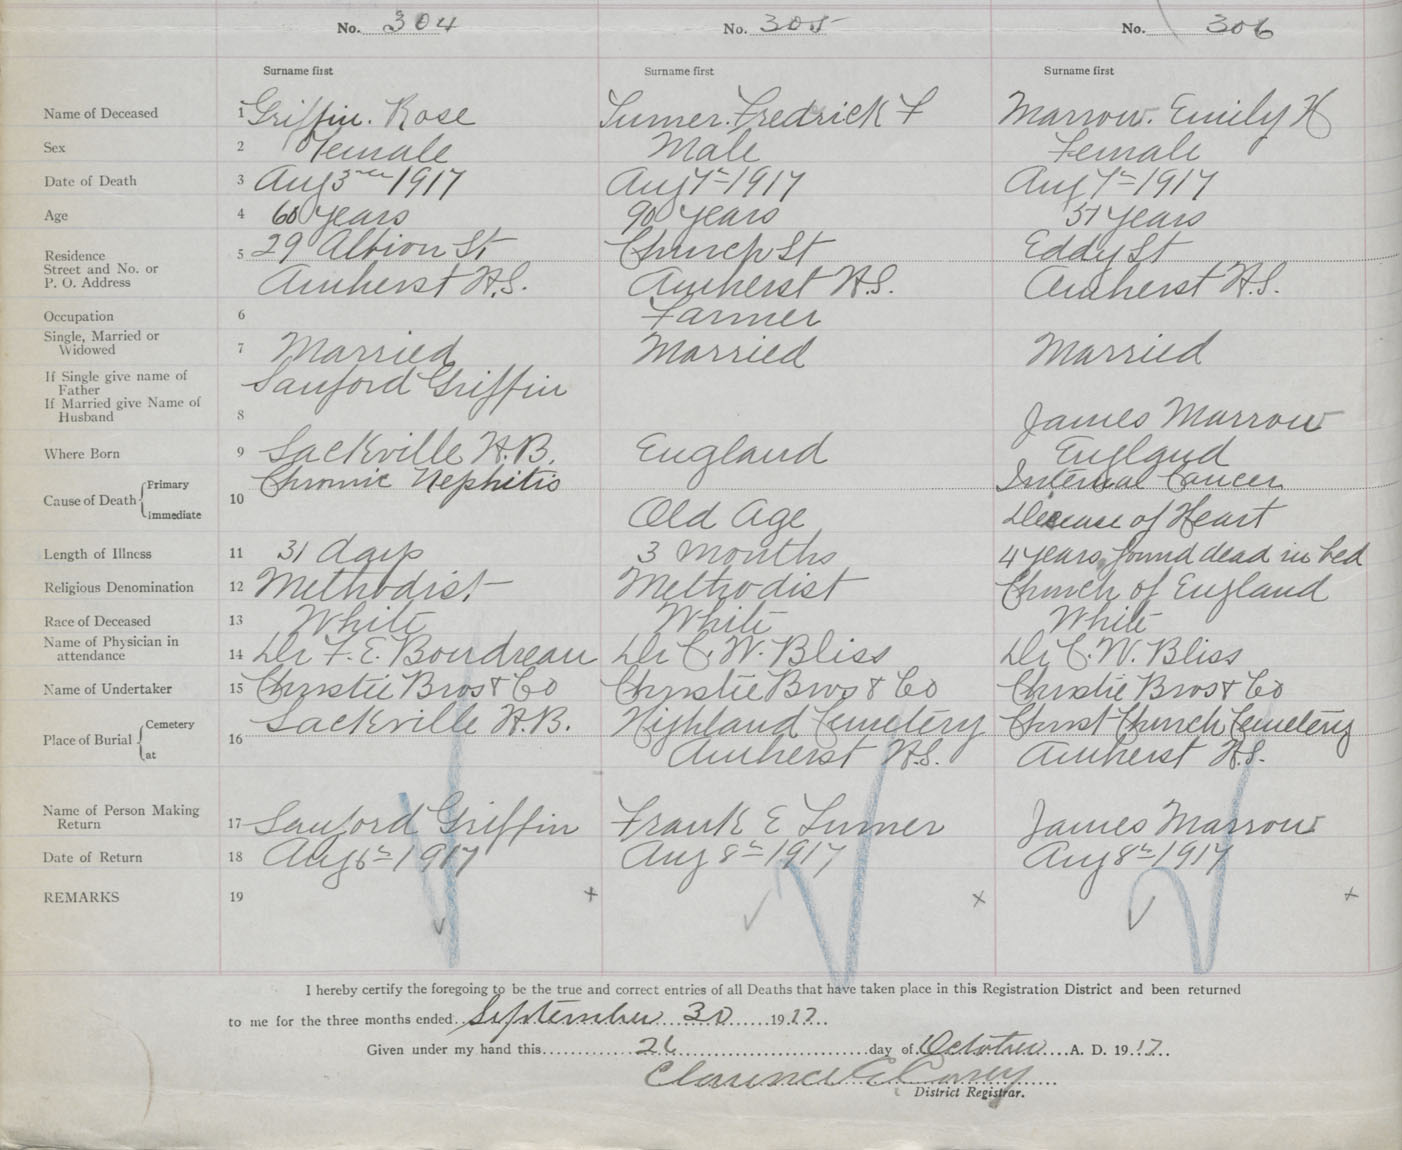 No. 304 No. 305 No. 306
Surname first Surname first Surname first
Name of Deceased 1 Griffin. Rose Turner. Fredrick F Marrow. Emily H
Sex 2 Female Male Female
Date of Death 3 Aug 3rd 1917 Aug 7th 1917 Aug 7th 1917
Age 4 60 years 90 years 51 years
Residence Street and No. or P. O. Address 5 29 Albion St Church St Eddy St
Amherst N.S. Amherst N.S. Amherst N.S.
Occupation 6 Farmer
Single, Married or Widowed 7 Married Married Married
If Single give name of Father Sanford Griffin
If Married give Name of Husband 8 James Marrow
Where Born 9 Sackville N.B. England England
Cause of Death 10 Primary Chronic Nephitis Internal Cancer
Immediate Old Age Disease of Heart
Length of Illness 11 31 days 3 months 4 years, found dead in bed
Religious Denomination 12 Methodist Methodist Church of England
Race of Deceased 13 White White White
Name of Physician in attendance 14 Dr F. E. Boudreau Dr C. W. Bliss Dr C. W. Bliss
Name of Undertaker 15 Christie Bros & Co Christie Bros & Co Christie Bros & Co
Place of Burial 16 Cemetery Sackville N.B. Highland Cemetery Christ Church Cemetery
at Amherst N.S. Amherst N.S.
Name of Person Making Return 17 Sanford Griffin Frank E Turner James Marrow
Date of Return 18 Aug 6th 1917 Aug 8th 1917 Aug 8th 1917
REMARKS 19 + x +
I hereby certify the foregoing to be the true and correct entries of all Deaths that have taken place in this Registration District and been returned
to me for the three months ended September 30 1917
Given under my hand this 26 day of October A. D. 1917
Clarence E Casey
District Registrar.